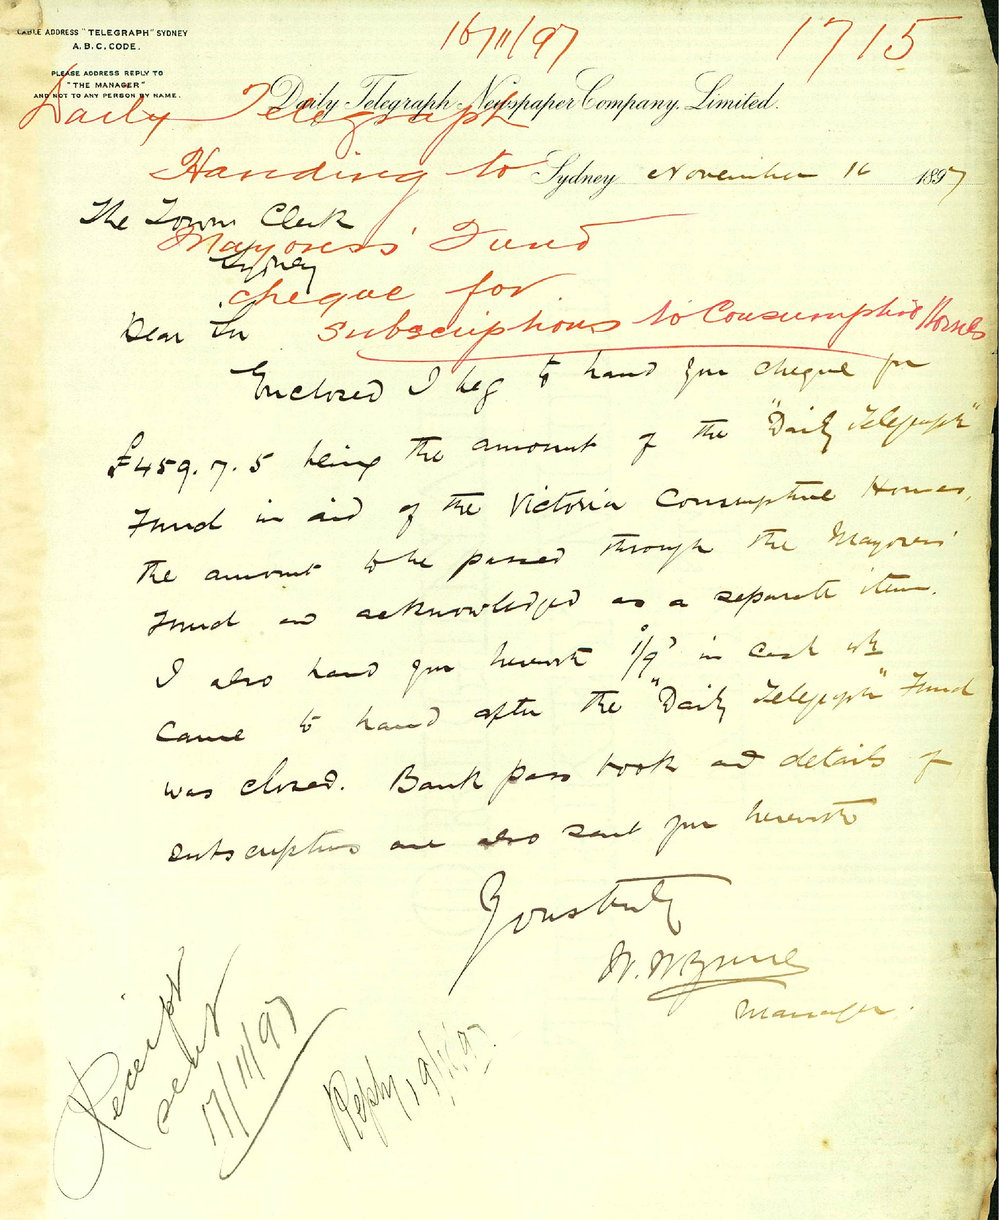 CABLE ADDRESS "TELEGRAPH" SYDNEY
A.B.C. CODE.
PLEASE ADDRESS REPLY TO
"THE MANAGER"
AND NOT TO ANY PERSON BY NAME.
16/11/97
1715
Daily Telegraph Newspaper Company, Limited.
Daily Telegraph
Handing to
Sydney November 16 1897
The Town Clerk
Mayoress' Fund
Sydney
cheque for
Dear Sir
subscriptions to Consumptive Homes
Enclosed I beg to hand you cheque for
£459.7.5 being the amount of the "Daily Telegraph"
Fund in aid of the Victoria Consumptive Homes,
the amount to be passed through the Mayoress'
Fund and acknowledged as a separate item.
I also hand you herewith 1/9 in cash wh
came to hand after the "Daily Telegraph" Fund
was closed. Bank pass book and details of
subscriptions are also sent you herewith
Yours truly
Manager.
Receipt
sent
17/11/97
Reply 19/11/97.